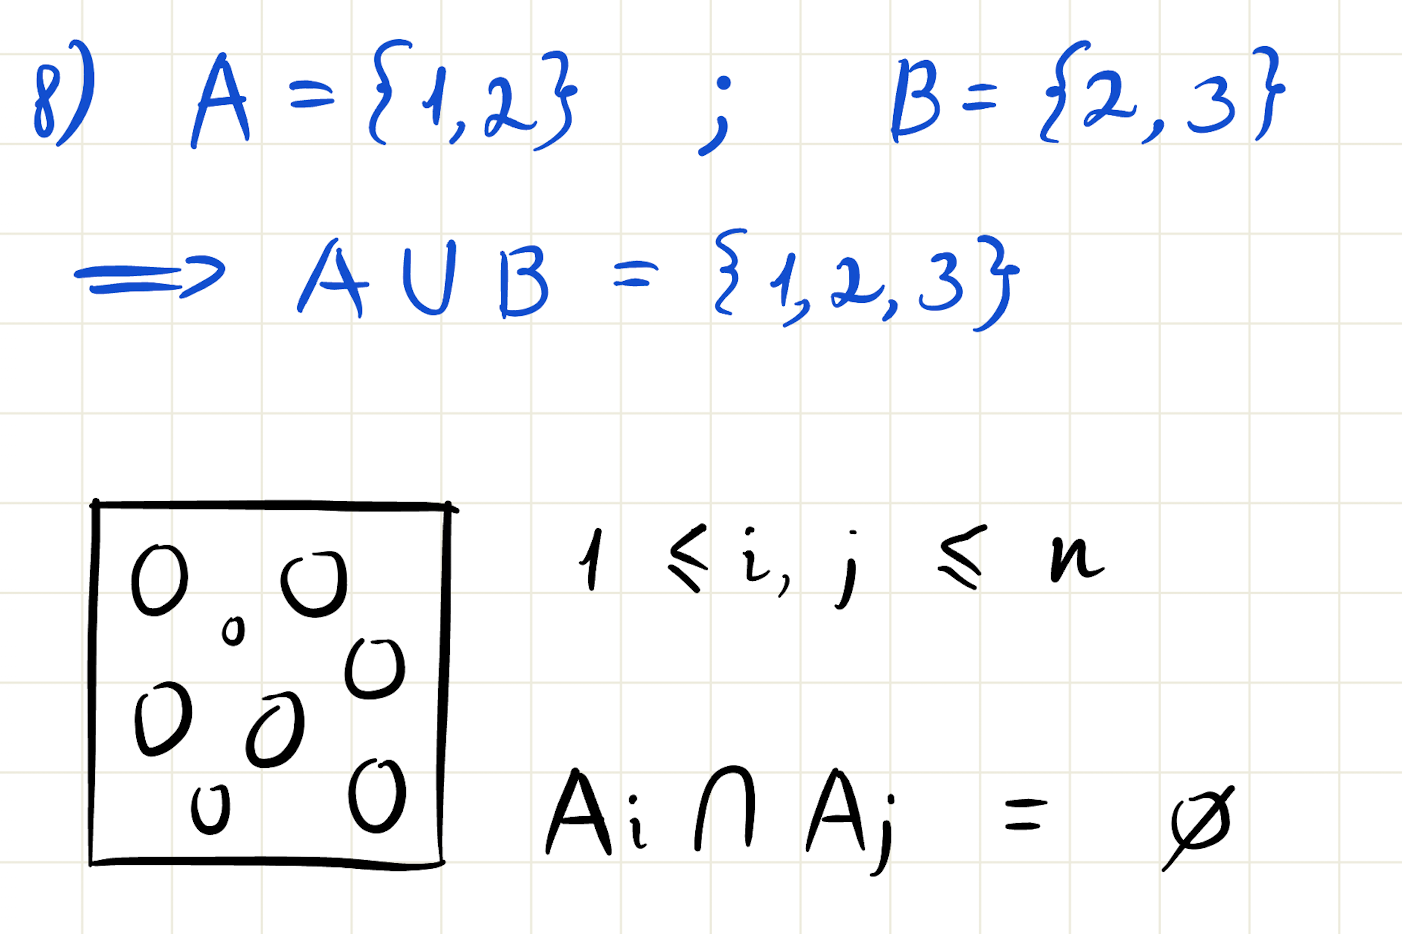 8) A = {1,2} ; B = {2,3}
⟹ A ∪ B = {1,2,3}
1 ≤ i, j ≤ n
Ai ∩ Aj = ∅